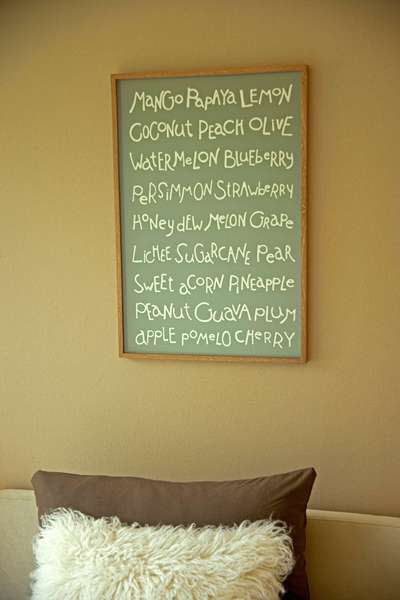 MANGO PAPAYA LEMON
COCONUT PEACH OLIVE
WATERMELON BLUEBERRY
PERSIMMON STRAWBERRY
HONEYDEW MELON GRAPE
LICHEE SUGARCANE PEAR
SWEET ACORN PINEAPPLE
PEANUT GUAVA PLUM
APPLE POMELO CHERRY